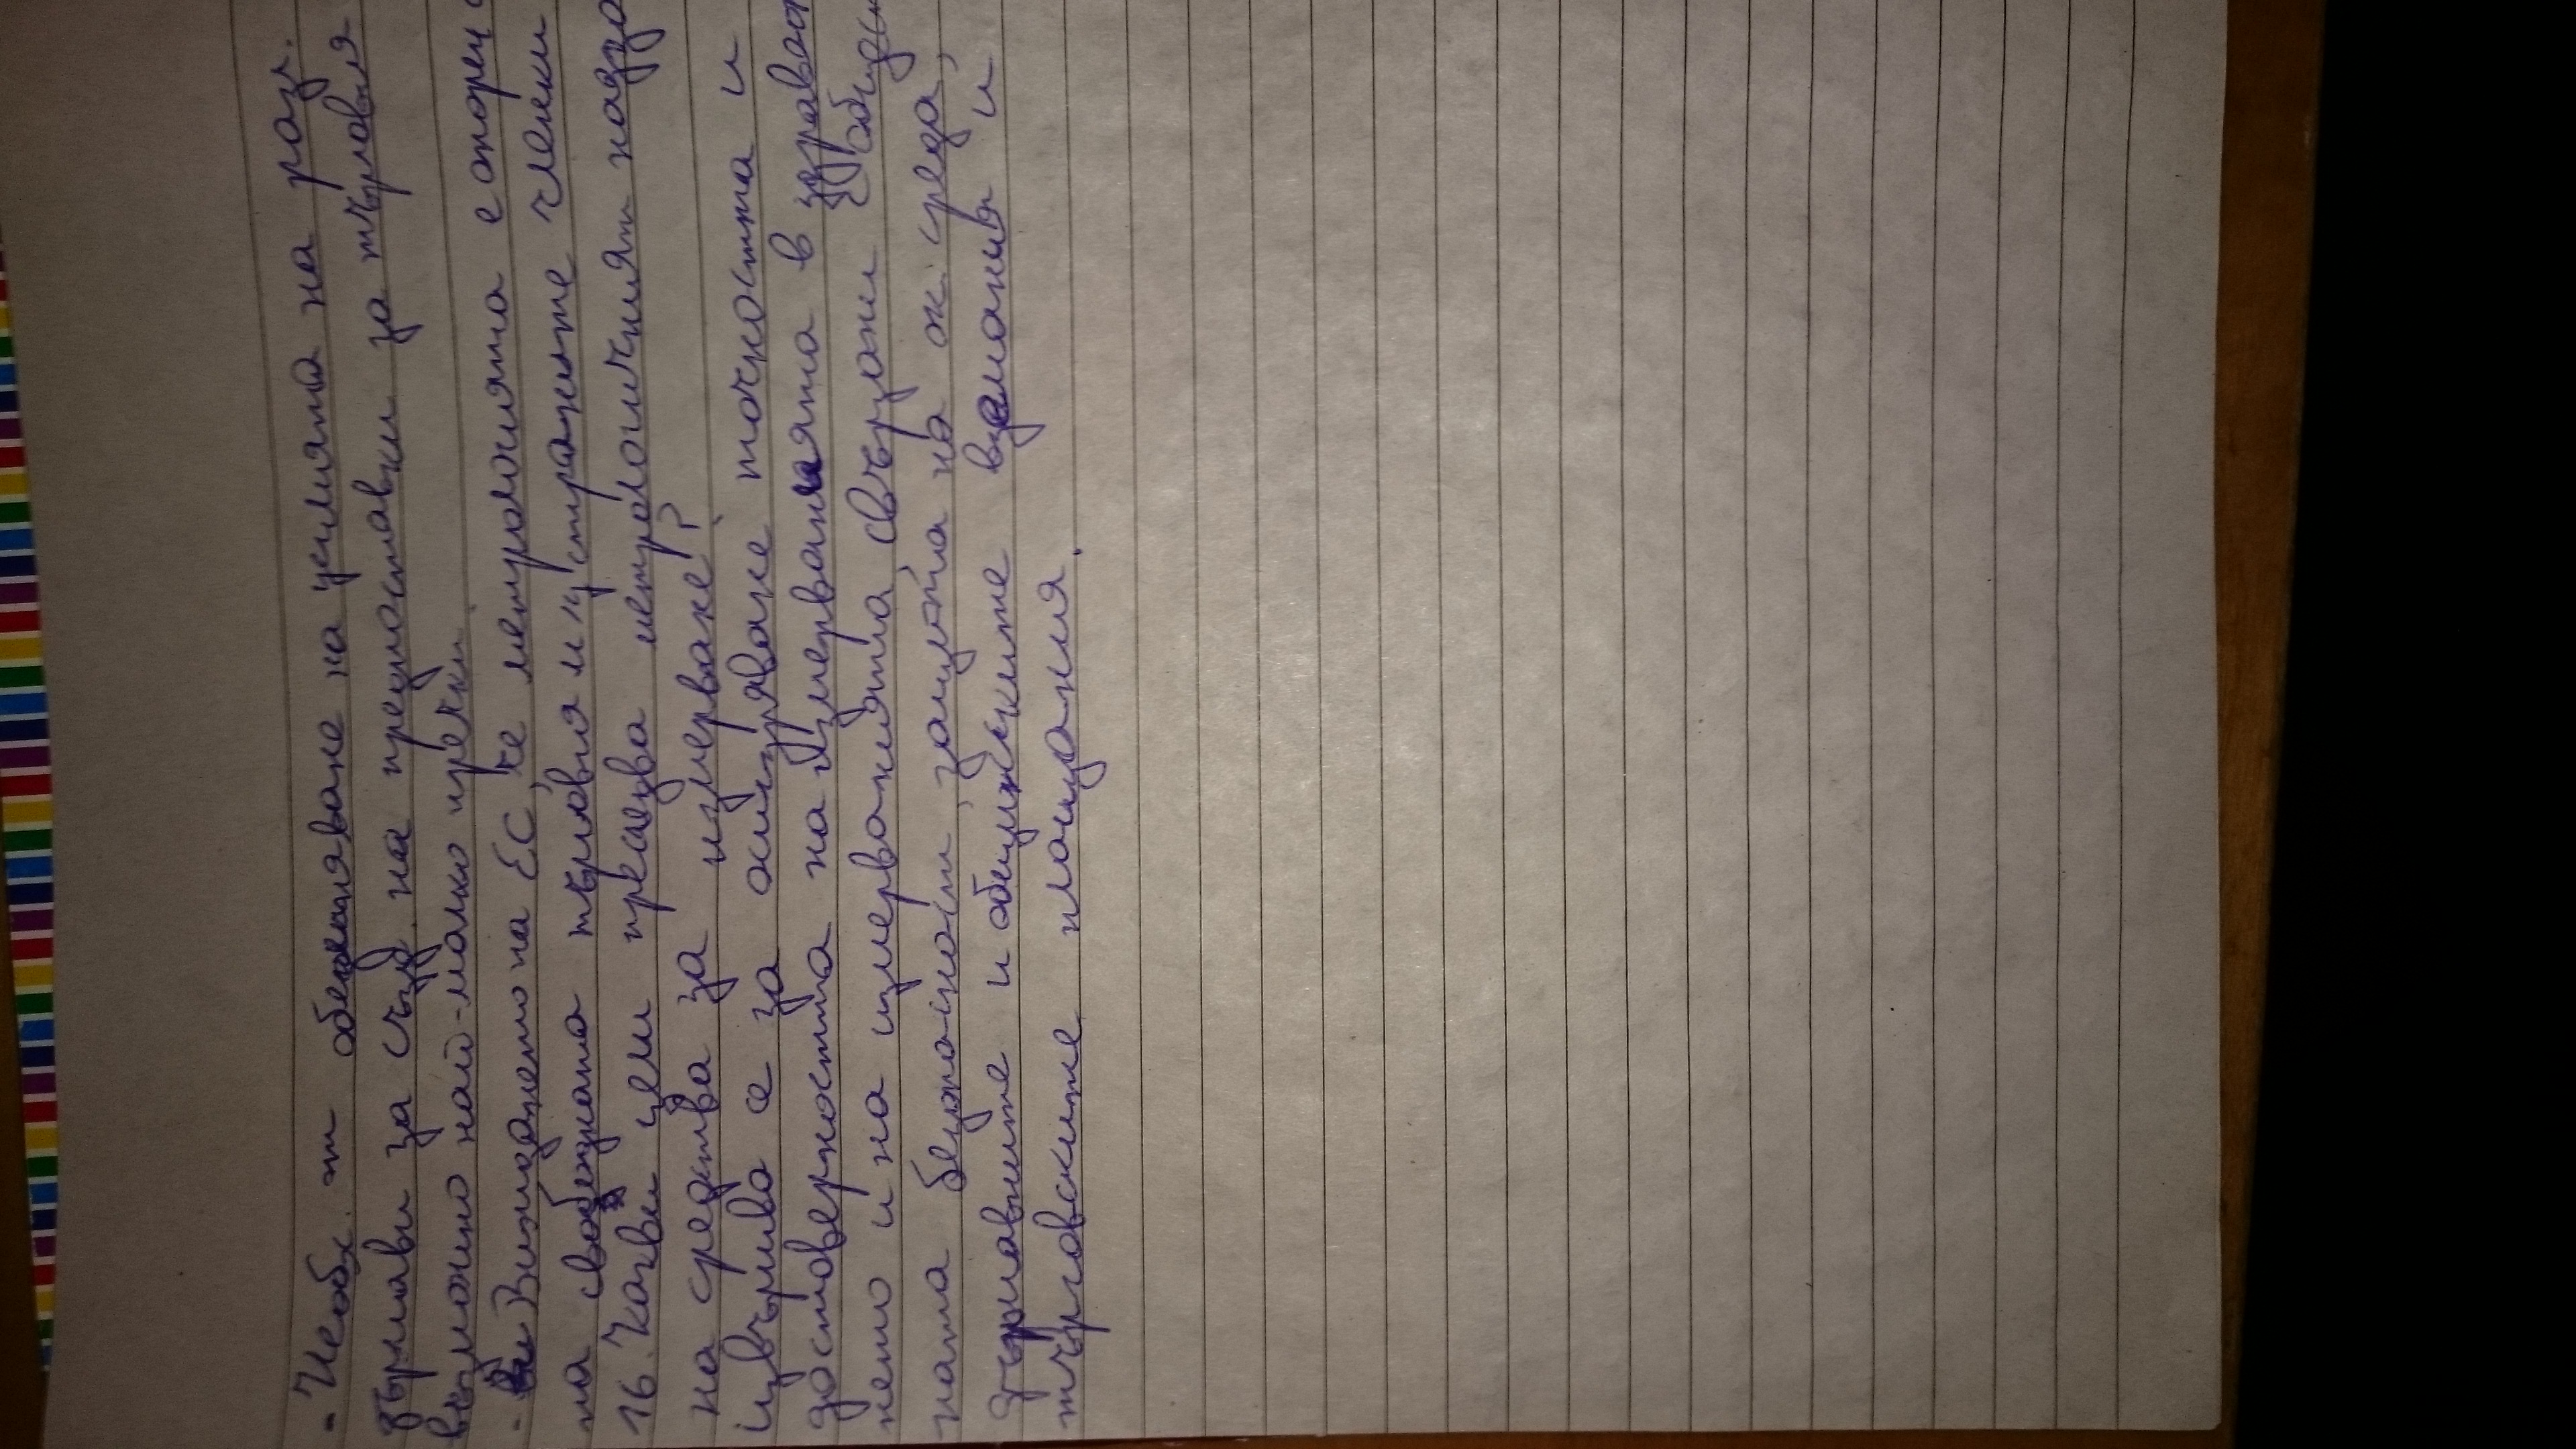 - Необх. от обединяване на усилията на разл.
държави за създ. на предпоставки за търговия
възможно най-малко пречки.
- Виждането на ЕС, че метрологията е опорен
на свободната търговия м/у страните членки
16. Какви цели преследва метрологичният надзо
на средства за измерване?
Извършва се за осигуряване точността и
достоверността на измерванията в здравео
нето и на измерванията, свързани с общест
ната безопасност, защита на ок. среда,
държавните и общинските вземания и
търговските плащания.